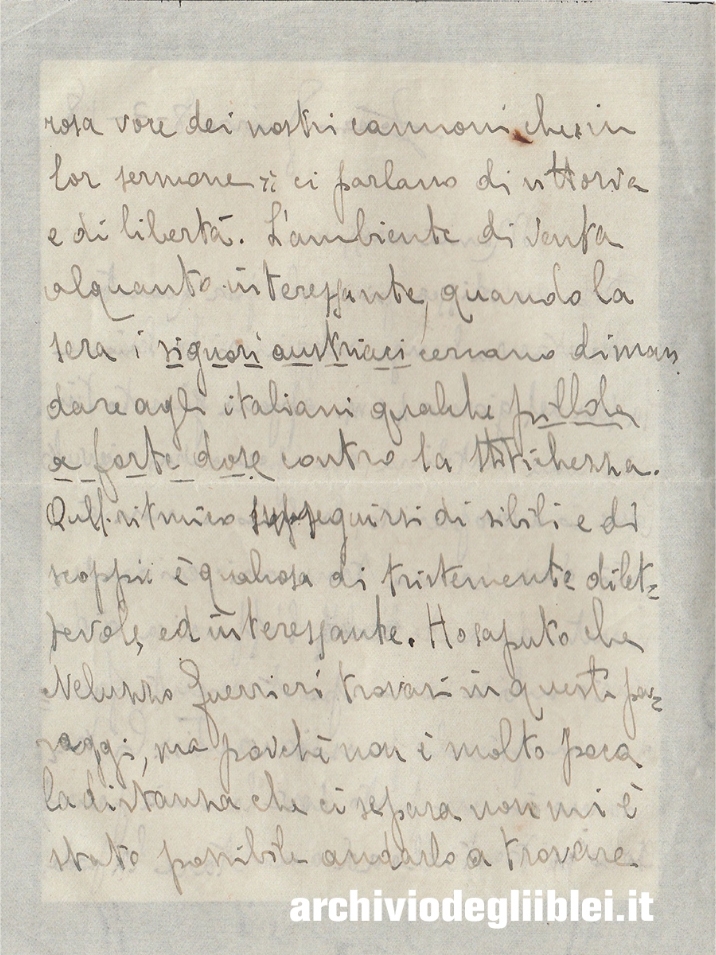 rosa voce dei nostri cannoni che in
lor sermone ci parlano di vittoria
e di libertà. L'ambiente diventa
alquanto interessante, quando la
sera i signori austriaci cercano di man
dare agli italiani qualche pillola
a forte dose contro la stitichezza.
Quel ritmico susseguirsi di sibili e di
scoppii è qualcosa di tristemente dilet=
tevole, ed interessante. Ho saputo che
Neluzzo Guerrieri trovasi in questi pa=
raggi, ma poichè non è molto poca
la distanza che ci separa non mi è
stato possibile andarlo a trovare.
archiviodegliiblei.it